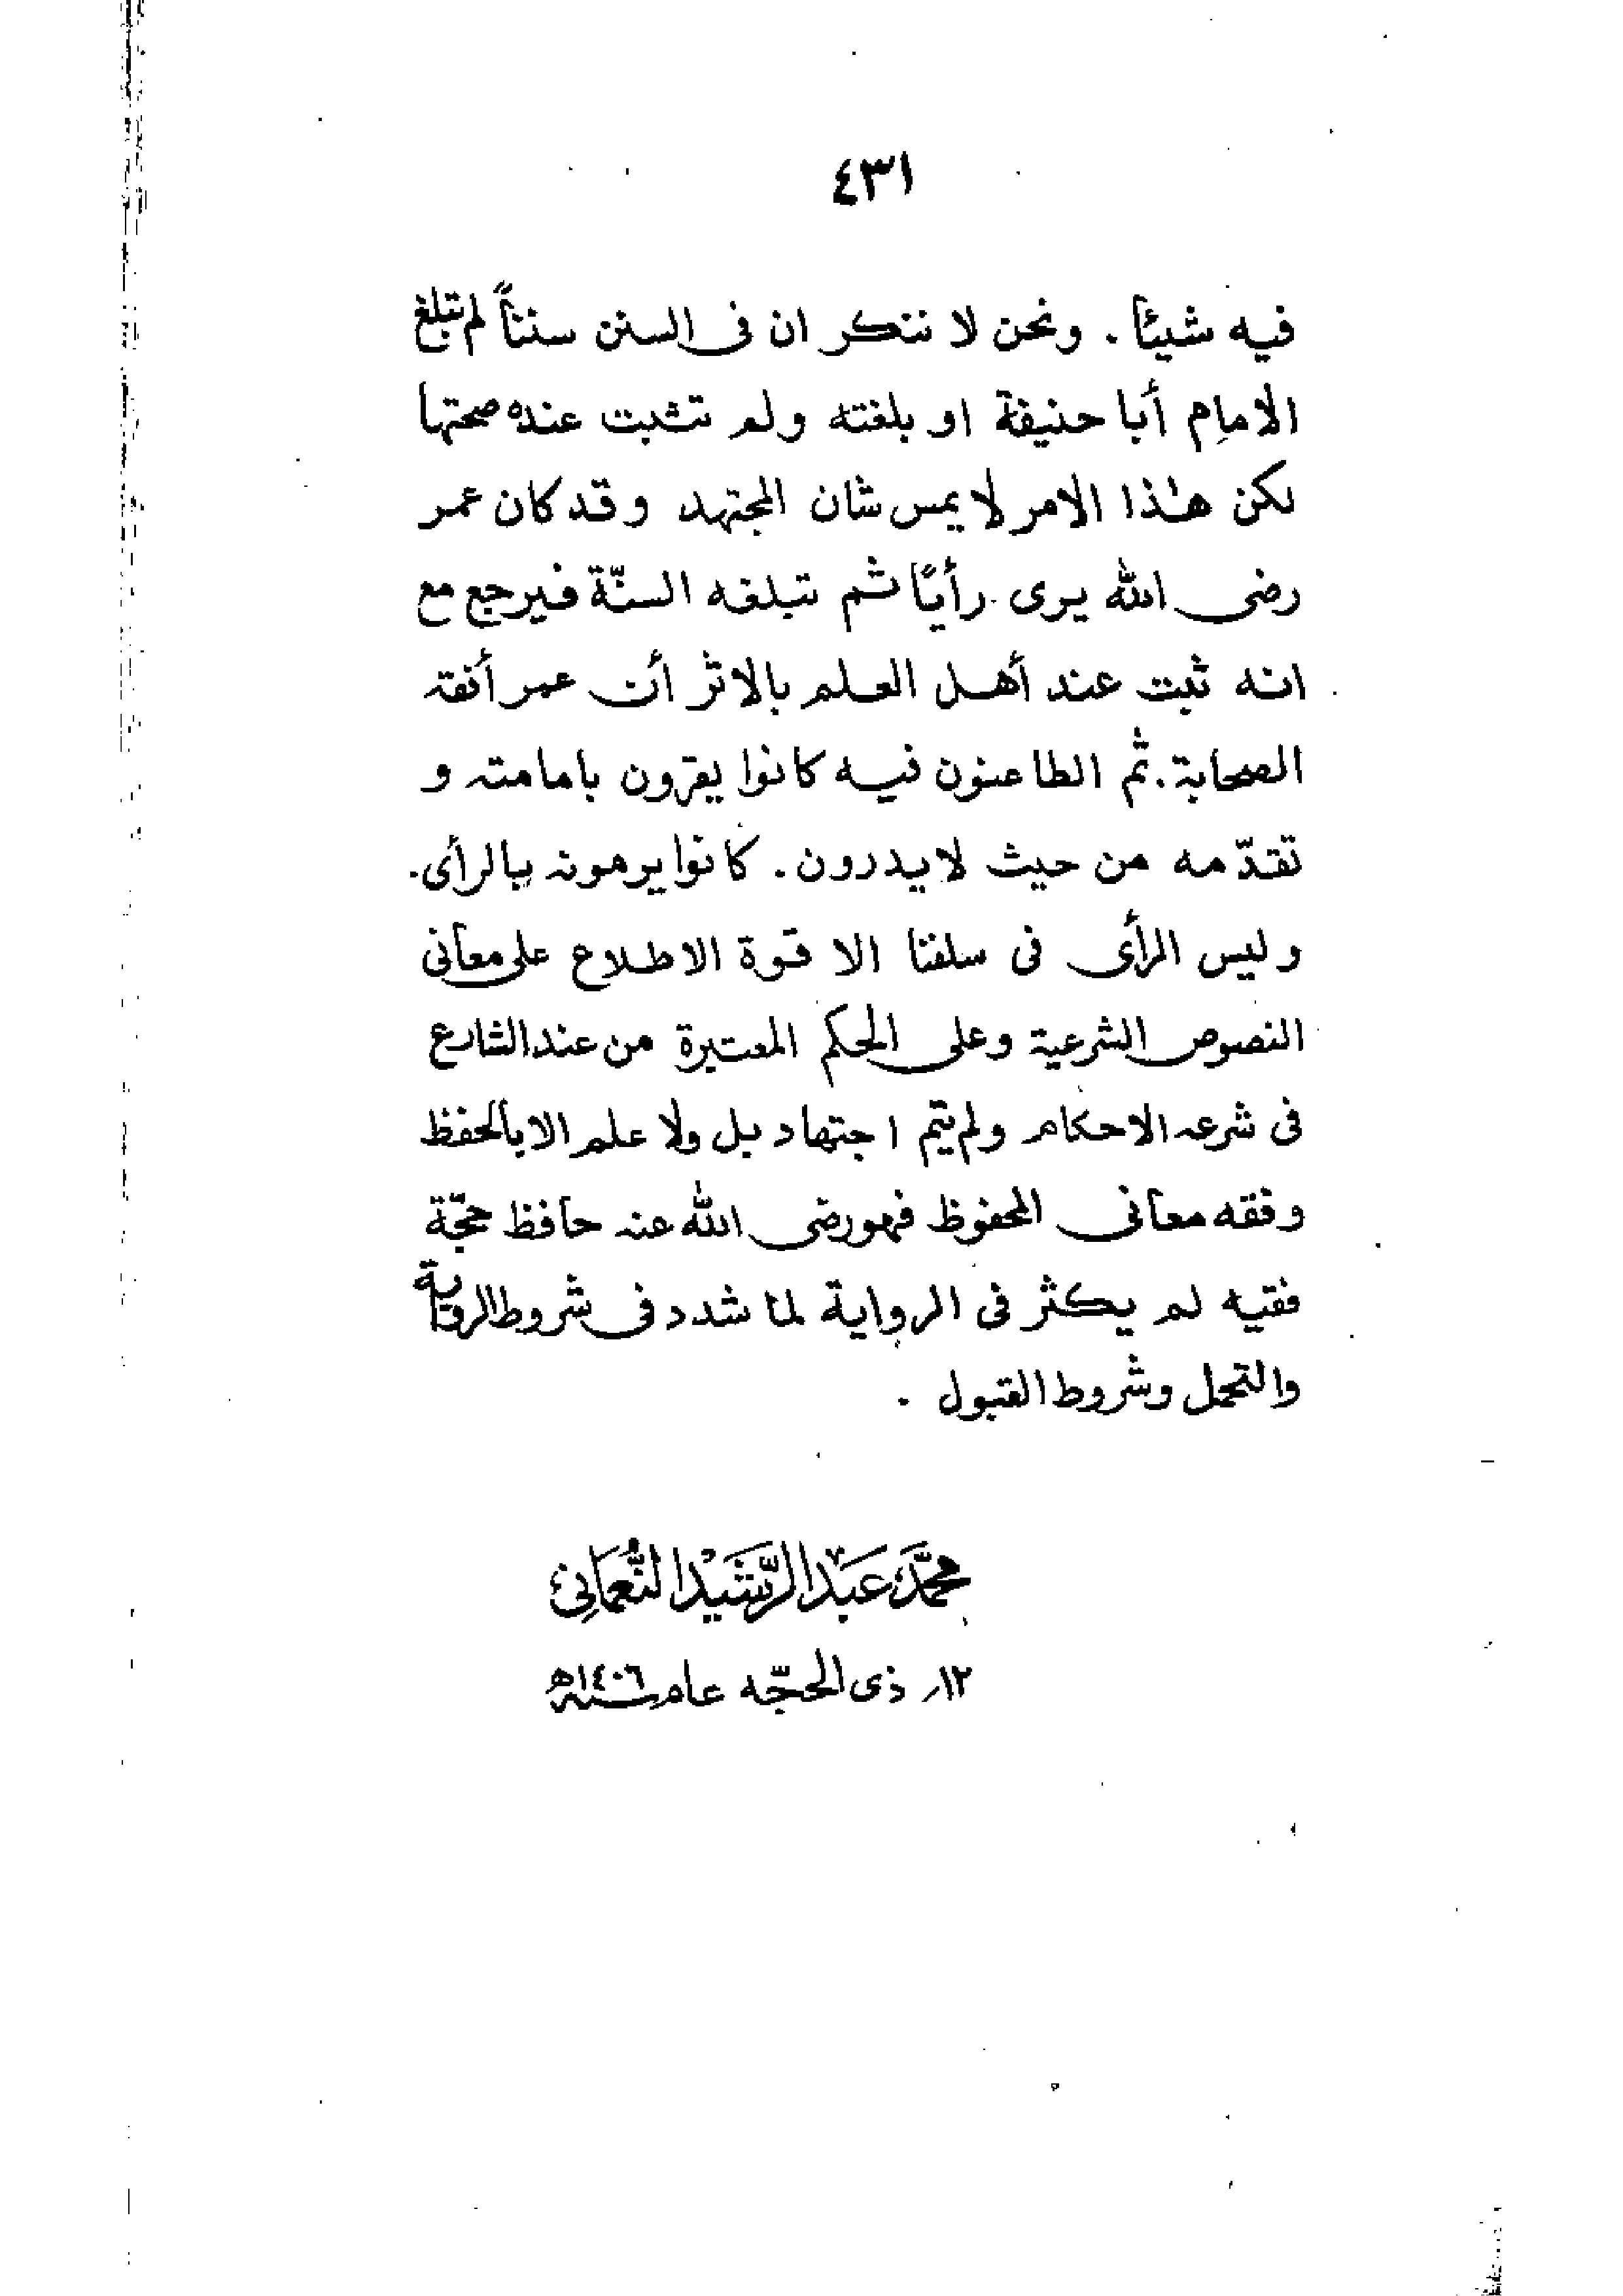 ٤٣١
فيه شيئا . ونحن لا ننكر ان فى السنن سنناً لم تبلغ
الامام أبا حنيفة او بلغته ولم تثبت عنده صحتها
لكن هٰذا الامر لا يمس شان المجتهد وقد كان عمر
رضى الله يرى رأيًا ثم تبلغه السنّة فيرجع مع
انه ثبت عند أهل العلم بالاثر أن عمر أفقه
الصحابة . ثم الطاعنون فيه كانوا يقرّون بامامته و
تقدّمه من حيث لا يدرون . كانوا يرمونه بالرأى .
وليس الرأى فى سلفنا الا قوة الاطلاع على معانى
النصوص الشرعية وعلى الحكم المعتبرة من عند الشارع
فى شرعه الاحكام ولم يتم اجتهاد بل ولا علم الا بالحفظ
وفقه معانى المحفوظ فهو رضى الله عنه حافظ حجّة
فقيه لم يكثر فى الرواية لما شدد فى شروط الرواية
والتحمل وشروط القبول .
محمَّد عَبد الرَّشيْد النُّعمَانِى
١٢؍ ذى الحجّه عام سنه ١٤٠٦ھ